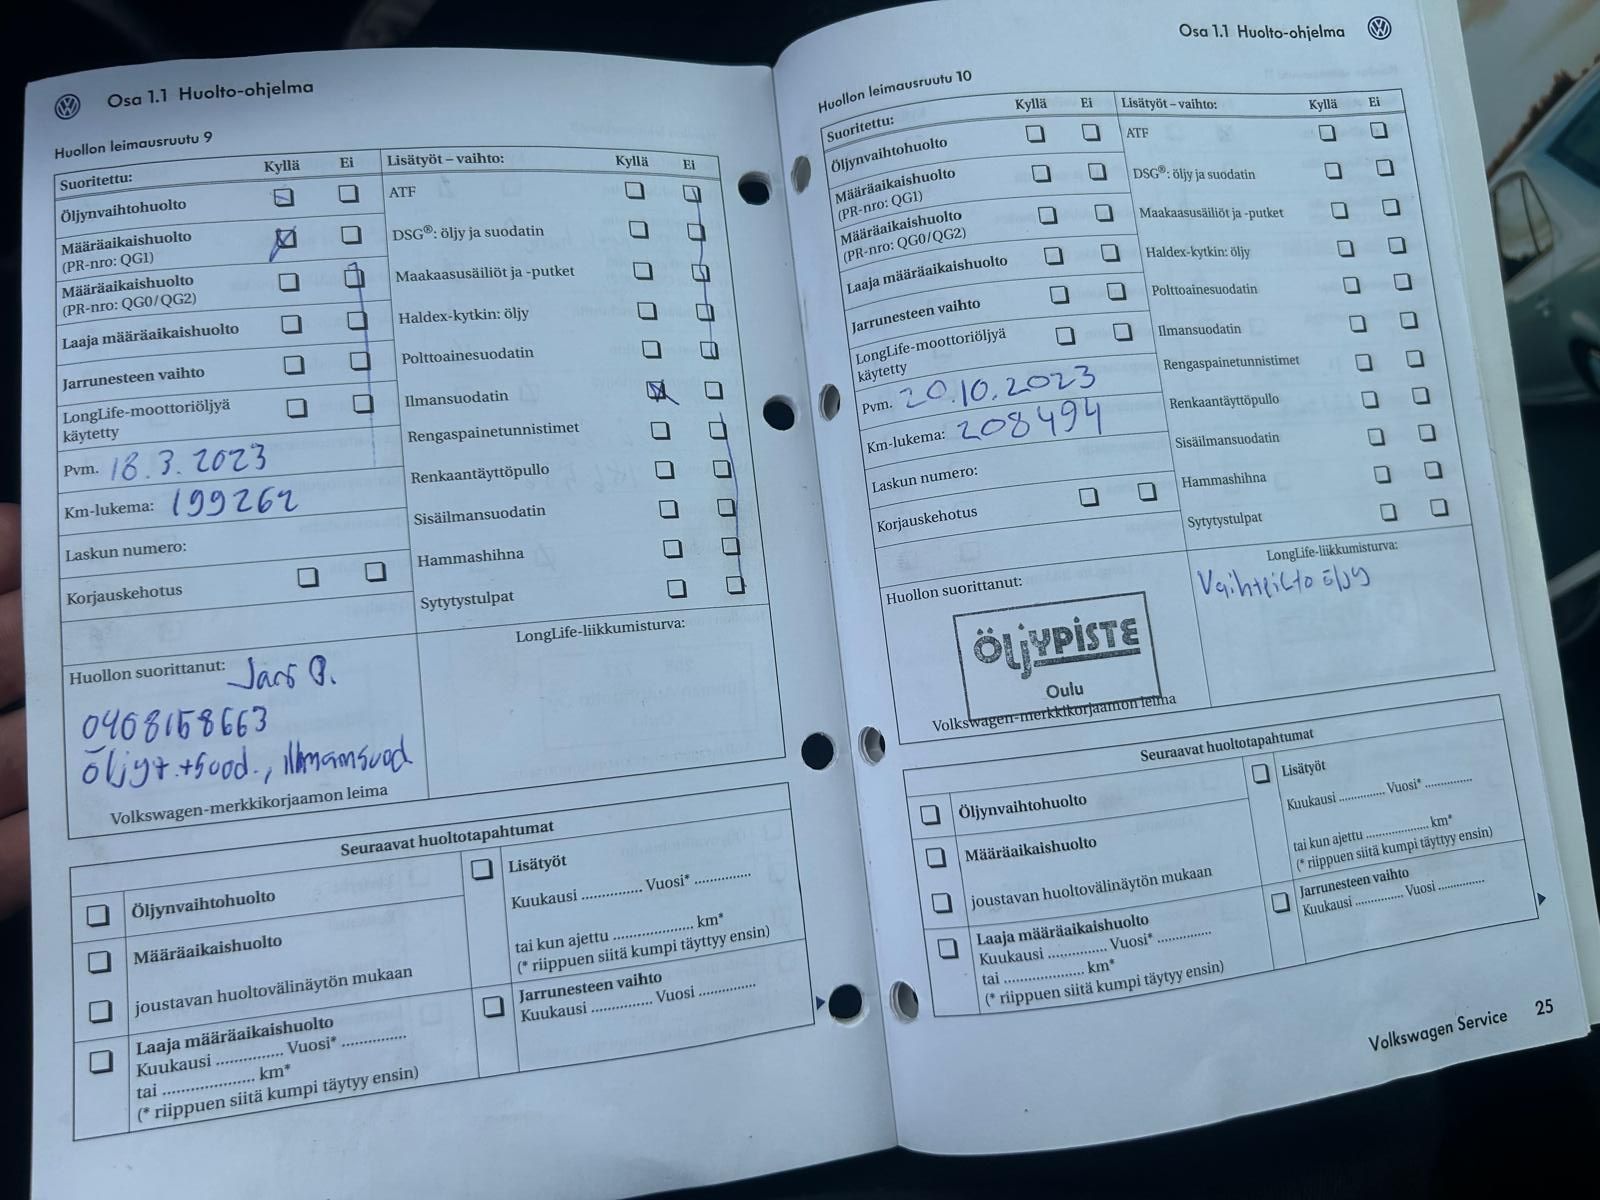 Osa 1.1 Huolto-ohjelma
Huollon leimausruutu 9
Suoritettu: Kyllä Ei
Öljynvaihtohuolto
Määräaikaishuolto
(PR-nro: QG1)
Määräaikaishuolto
(PR-nro: QG0/QG2)
Laaja määräaikaishuolto
Jarrunesteen vaihto
LongLife-moottoriöljyä
käytetty
Pvm. 18.3.2023
Km-lukema: 199262
Laskun numero:
Korjauskehotus
Lisätyöt – vaihto: Kyllä Ei
ATF
DSG®: öljy ja suodatin
Maakaasusäiliöt ja -putket
Haldex-kytkin: öljy
Polttoainesuodatin
Ilmansuodatin
Rengaspainetunnistimet
Renkaantäyttöpullo
Sisäilmansuodatin
Hammashihna
Sytytystulpat
Huollon suorittanut:
0408158663
Öljyt.+suod.,
Volkswagen-merkkikorjaamon leima
LongLife-liikkumisturva:
Seuraavat huoltotapahtumat
Öljynvaihtohuolto
Määräaikaishuolto
joustavan huoltovälinäytön mukaan
Laaja määräaikaishuolto
Kuukausi ............... Vuosi* ...............
tai ..................... km*
(* riippuen siitä kumpi täytyy ensin)
Lisätyöt
Kuukausi .............. Vuosi* .............
tai kun ajettu .................... km*
(* riippuen siitä kumpi täyttyy ensin)
Jarrunesteen vaihto
Kuukausi .............. Vuosi ..............
Osa 1.1 Huolto-ohjelma
Huollon leimausruutu 10
Suoritettu: Kyllä Ei
Öljynvaihtohuolto
Määräaikaishuolto
(PR-nro: QG1)
Määräaikaishuolto
(PR-nro: QG0/QG2)
Laaja määräaikaishuolto
Jarrunesteen vaihto
LongLife-moottoriöljyä
käytetty
Pvm. 20.10.2023
Km-lukema: 208494
Laskun numero:
Korjauskehotus
Lisätyöt – vaihto: Kyllä Ei
ATF
DSG®: öljy ja suodatin
Maakaasusäiliöt ja -putket
Haldex-kytkin: öljy
Polttoainesuodatin
Ilmansuodatin
Rengaspainetunnistimet
Renkaantäyttöpullo
Sisäilmansuodatin
Hammashihna
Sytytystulpat
Huollon suorittanut:
ÖLJYPISTE
Oulu
Volkswagen-merkkikorjaamon leima
LongLife-liikkumisturva:
Vaihteisto öljy
Seuraavat huoltotapahtumat
Öljynvaihtohuolto
Määräaikaishuolto
joustavan huoltovälinäytön mukaan
Laaja määräaikaishuolto
Kuukausi ............... Vuosi* ..............
tai ..................... km*
(* riippuen siitä kumpi täytyy ensin)
Lisätyöt
Kuukausi .............. Vuosi* .............
tai kun ajettu .................... km*
(* riippuen siitä kumpi täyttyy ensin)
Jarrunesteen vaihto
Kuukausi .............. Vuosi ..............
Volkswagen Service 25